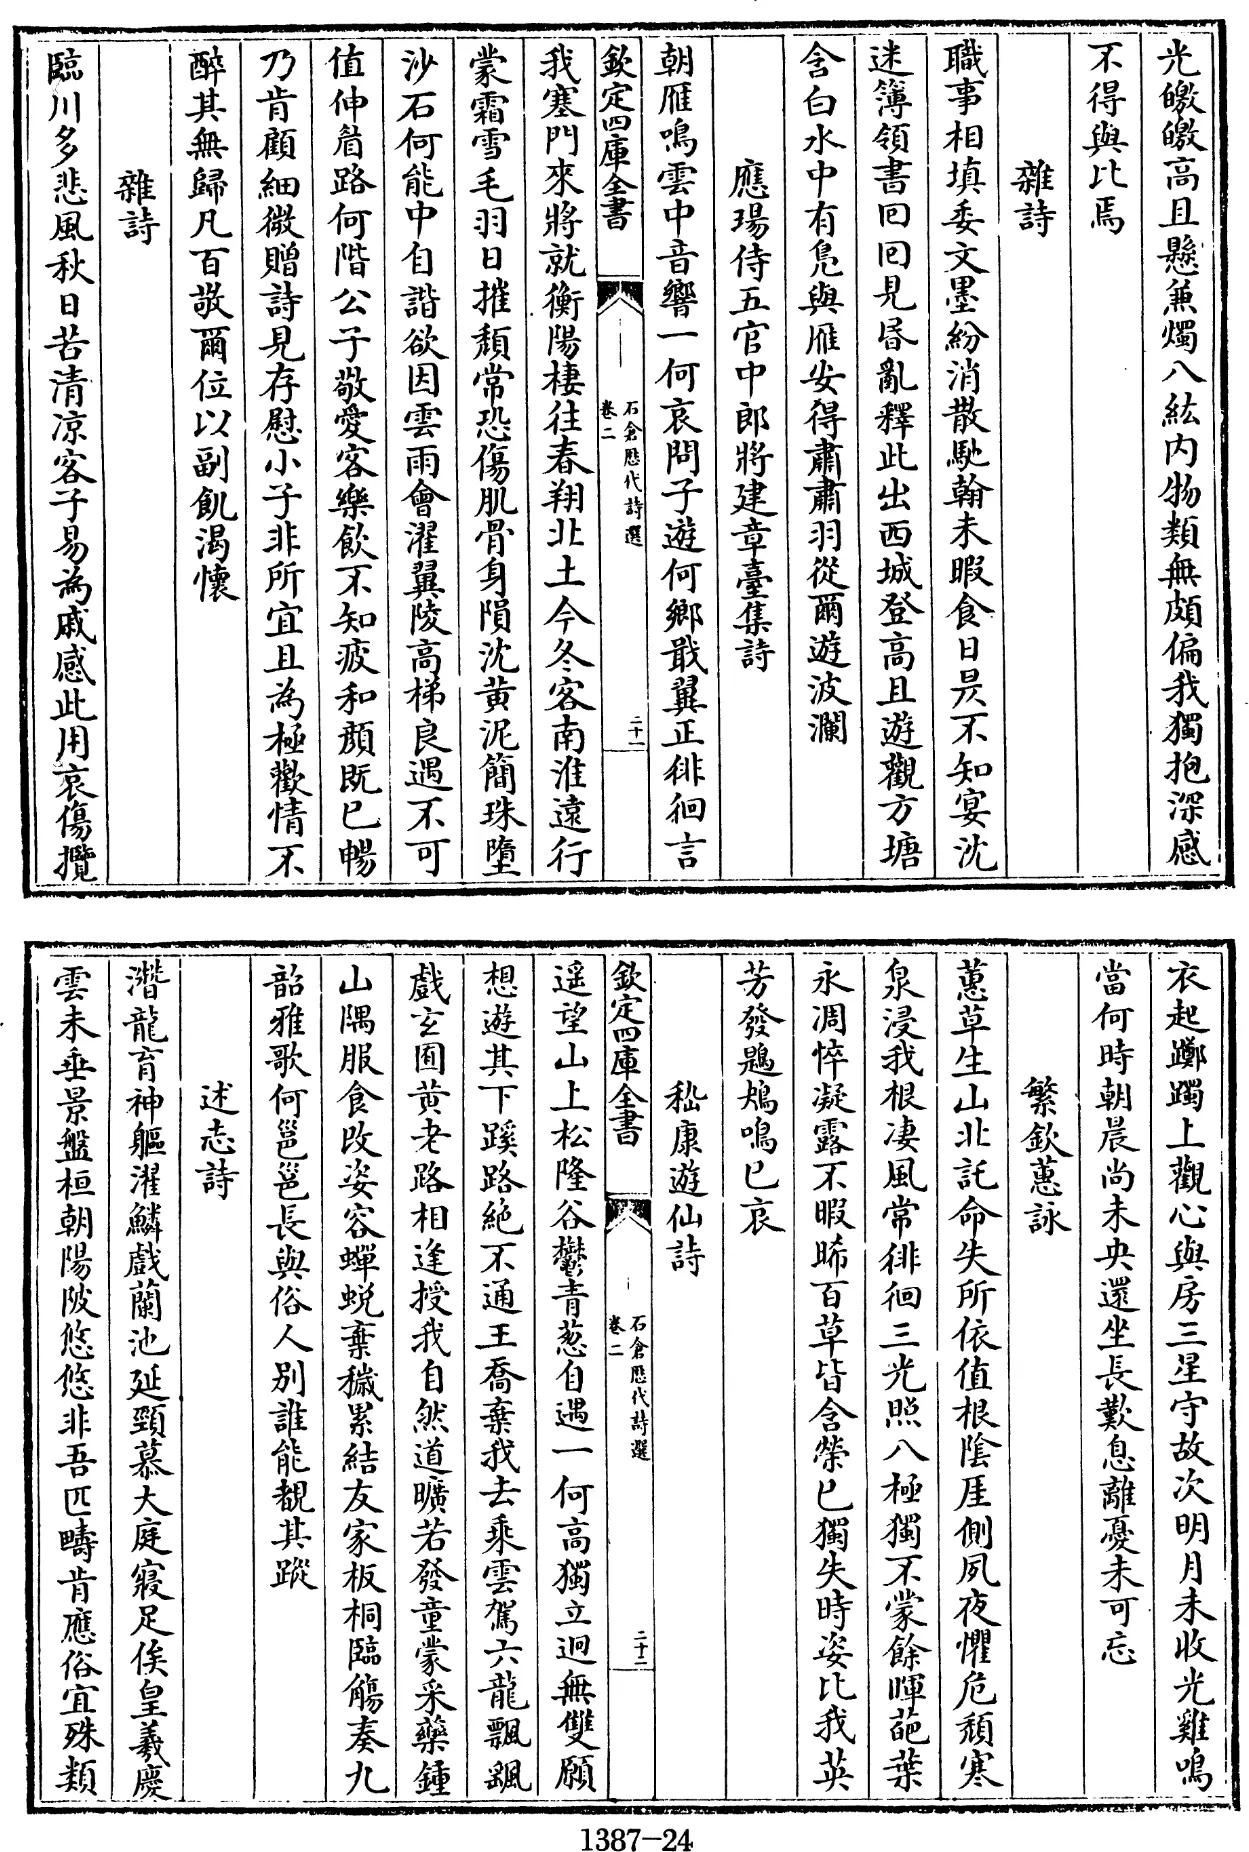 光皦皦高且懸兼燭八紘内物類無頗偏我獨抱深感
不得與比焉
雜詩
職事相填委文墨紛消散馳翰未暇食日昃不知宴沈
迷簿領書回回見昏亂釋此出西城登高且遊觀方塘
含白水中有鳧與雁安得肅肅羽從爾遊波瀾
應瑒侍五官中郎將建章臺集詩
朝雁鳴雲中音響一何哀問子遊何鄉戢翼正徘徊言
欽定四庫全書
石倉歷代詩選
卷二
二十一
我塞門來將就衡陽棲往春翔北土今冬客南淮遠行
蒙霜雪毛羽日摧頹常恐傷肌骨身隕沈黄泥簡珠墮
沙石何能中自諧欲因雲雨會濯翼陵高梯良遇不可
值伸眉路何階公子敬愛客樂飲不知疲和顏既已暢
乃肯顧細微贈詩見存慰小子非所宜且為極歡情不
醉其無歸凡百敬爾位以副飢渴懷
雜詩
臨川多悲風秋日苦清凉客子易為戚感此用哀傷攬
衣起躑躅上觀心與房三星守故次明月未收光雞鳴
當何時朝晨尚未央還坐長歎息離憂未可忘
繁欽蕙詠
蕙草生山北託命失所依值根陰厓側夙夜懼危頹寒
泉浸我根凄風常徘徊三光照八極獨不蒙餘暉葩葉
永凋悴凝露不暇晞百草皆含榮已獨失時姿比我英
芳發鶗鴂鳴已哀
嵇康遊仙詩
欽定四庫全書
石倉歷代詩選
卷二
二十二
遥望山上松隆谷鬱青葱自遇一何高獨立迥無雙願
想遊其下蹊路絶不通王喬棄我去乘雲駕六龍飄颻
戲玄圃黄老路相逢授我自然道曠若發童蒙采藥鍾
山隅服食改姿容蟬蜕棄穢累結友家板桐臨觴奏九
韶雅歌何邕邕長與俗人别誰能覩其蹤
述志詩
潛龍育神軀濯鱗戲蘭池延頸慕大庭寢足俟皇羲慶
雲未垂景盤桓朝陽陂悠悠非吾匹疇肯應俗宜殊類
1387-24